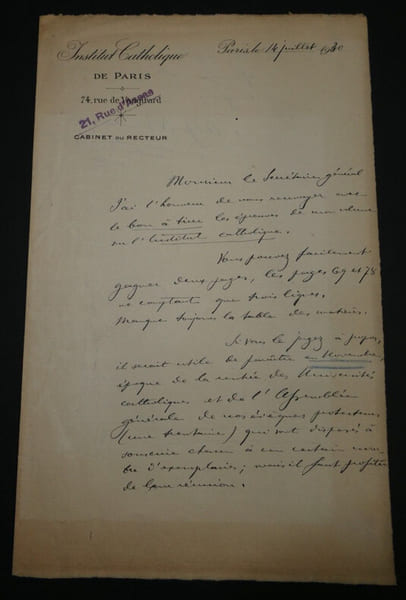 Institut Catholique
DE PARIS
74, rue de Vaugirard
21, Rue d'Assas
CABINET DU RECTEUR
Paris le 14 juillet 1930
Monsieur le Secrétaire général
J'ai l'honneur de vous renvoyer avec
le bon à tirer les épreuves de mon volume
sur l'Institut catholique.
Vous pouvez facilement
gagner deux pages, les pages 69 et 78
ne comptant que trois lignes.
Manque toujours la table des matières.
Si vous le jugez à propos,
il serait utile de paraître en Novembre,
époque de la rentrée des Universités
catholiques et de l'Assemblée
générale de nos évêques protecteurs
(une trentaine) qui sont disposés à
souscrire chacun à un certain nom-
bre d'exemplaires; mais il faut profiter
de leur réunion.